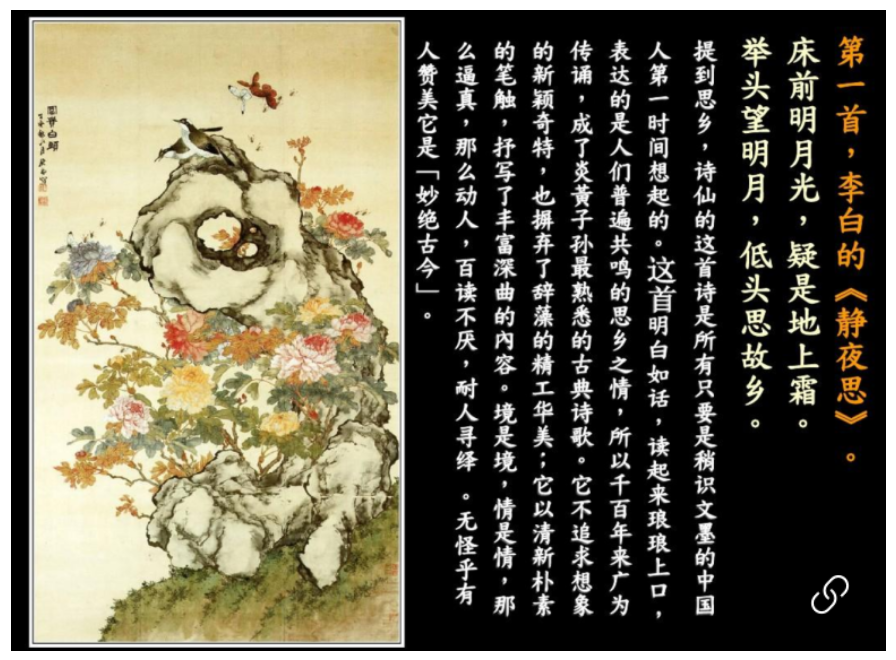 第一首，李白的《静夜思》。
床前明月光，疑是地上霜。
举头望明月，低头思故乡。
提到思乡，诗仙的这首诗是所有只要是稍识文墨的中国
人第一时间想起的。这首明白如话，读起来琅琅上口，
表达的是人们普遍共鸣的思乡之情，所以千百年来广为
传诵，成了炎黄子孙最熟悉的古典诗歌。它不追求想象
的新颖奇特，也摒弃了辞藻的精工华美；它以清新朴素
的笔触，抒写了丰富深曲的内容。境是境，情是情，那
么逼真，那么动人，百读不厌，耐人寻绎。无怪乎有
人赞美它是「妙绝古今」。